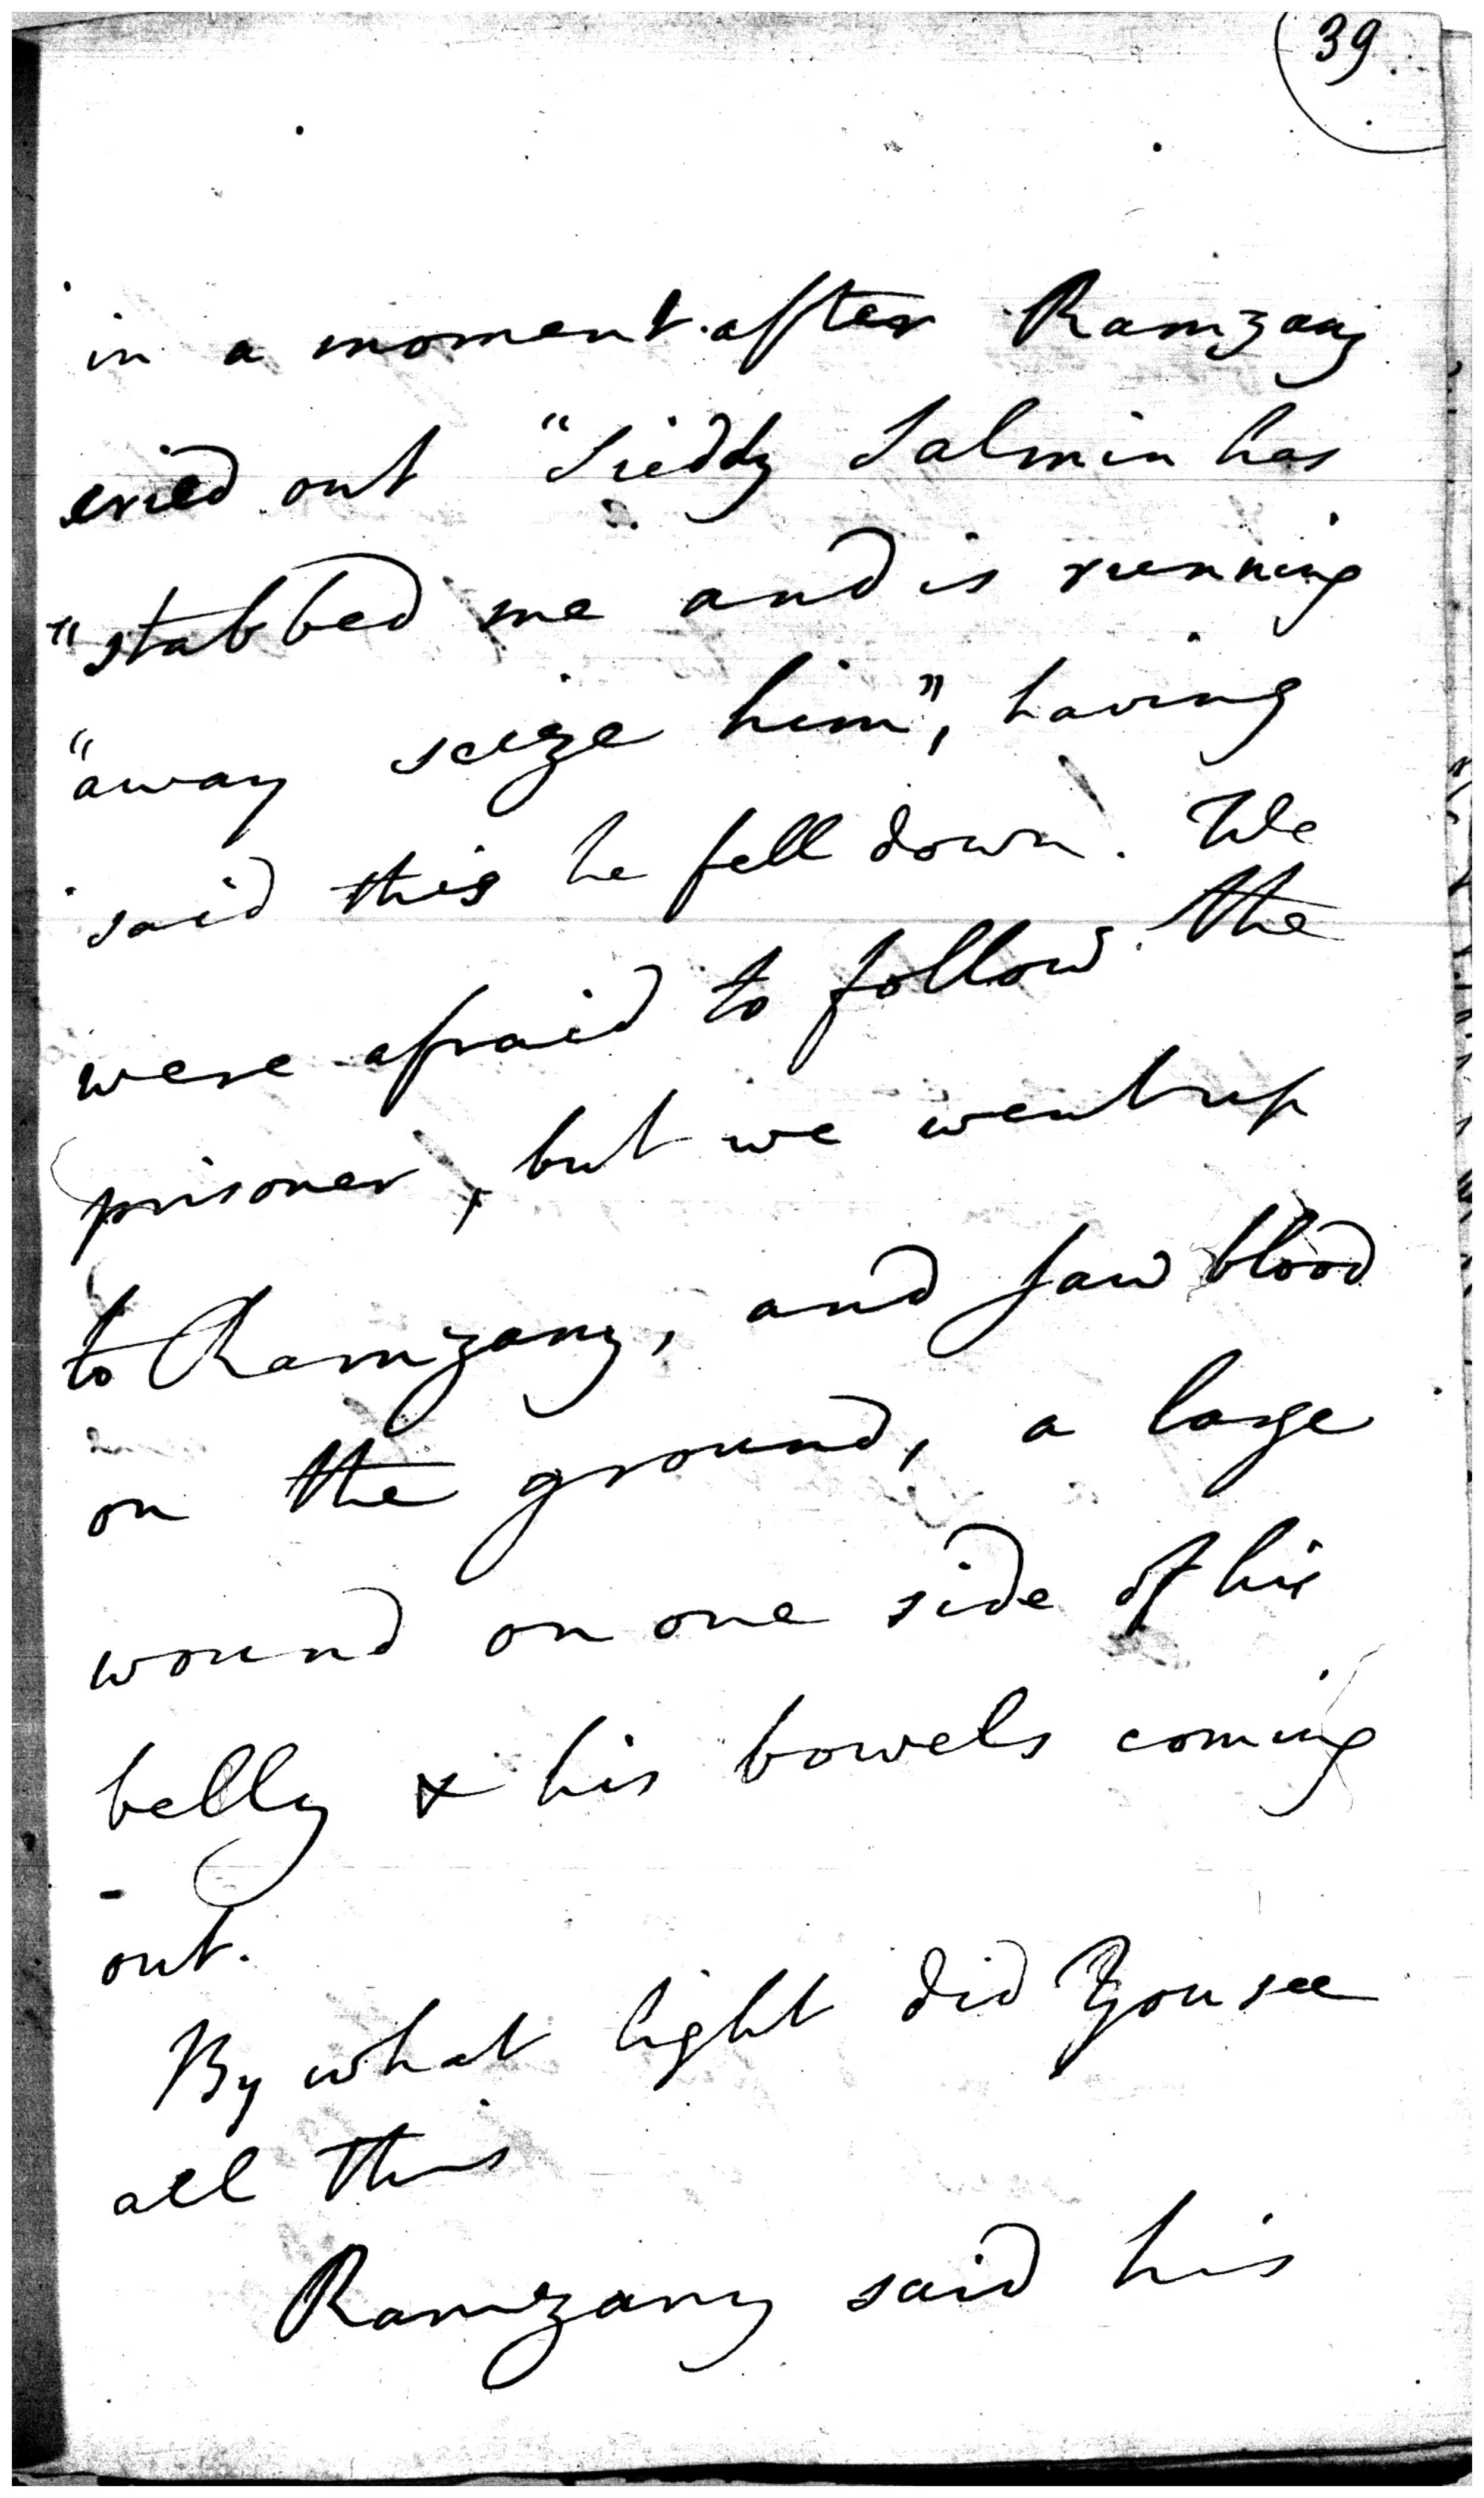 39
in a moment after Ramzany
cried out "Sieddy Salmin has
"stabbed me and is running
"away seize him", having
said this he fell down. We
were afraid to follow the
prisoner, but we went up
to Ramzany, and saw blood
on the ground, a large
wound on one side of his
belly & his bowels coming
out.
By what light did You see
all this
Ramzany said his